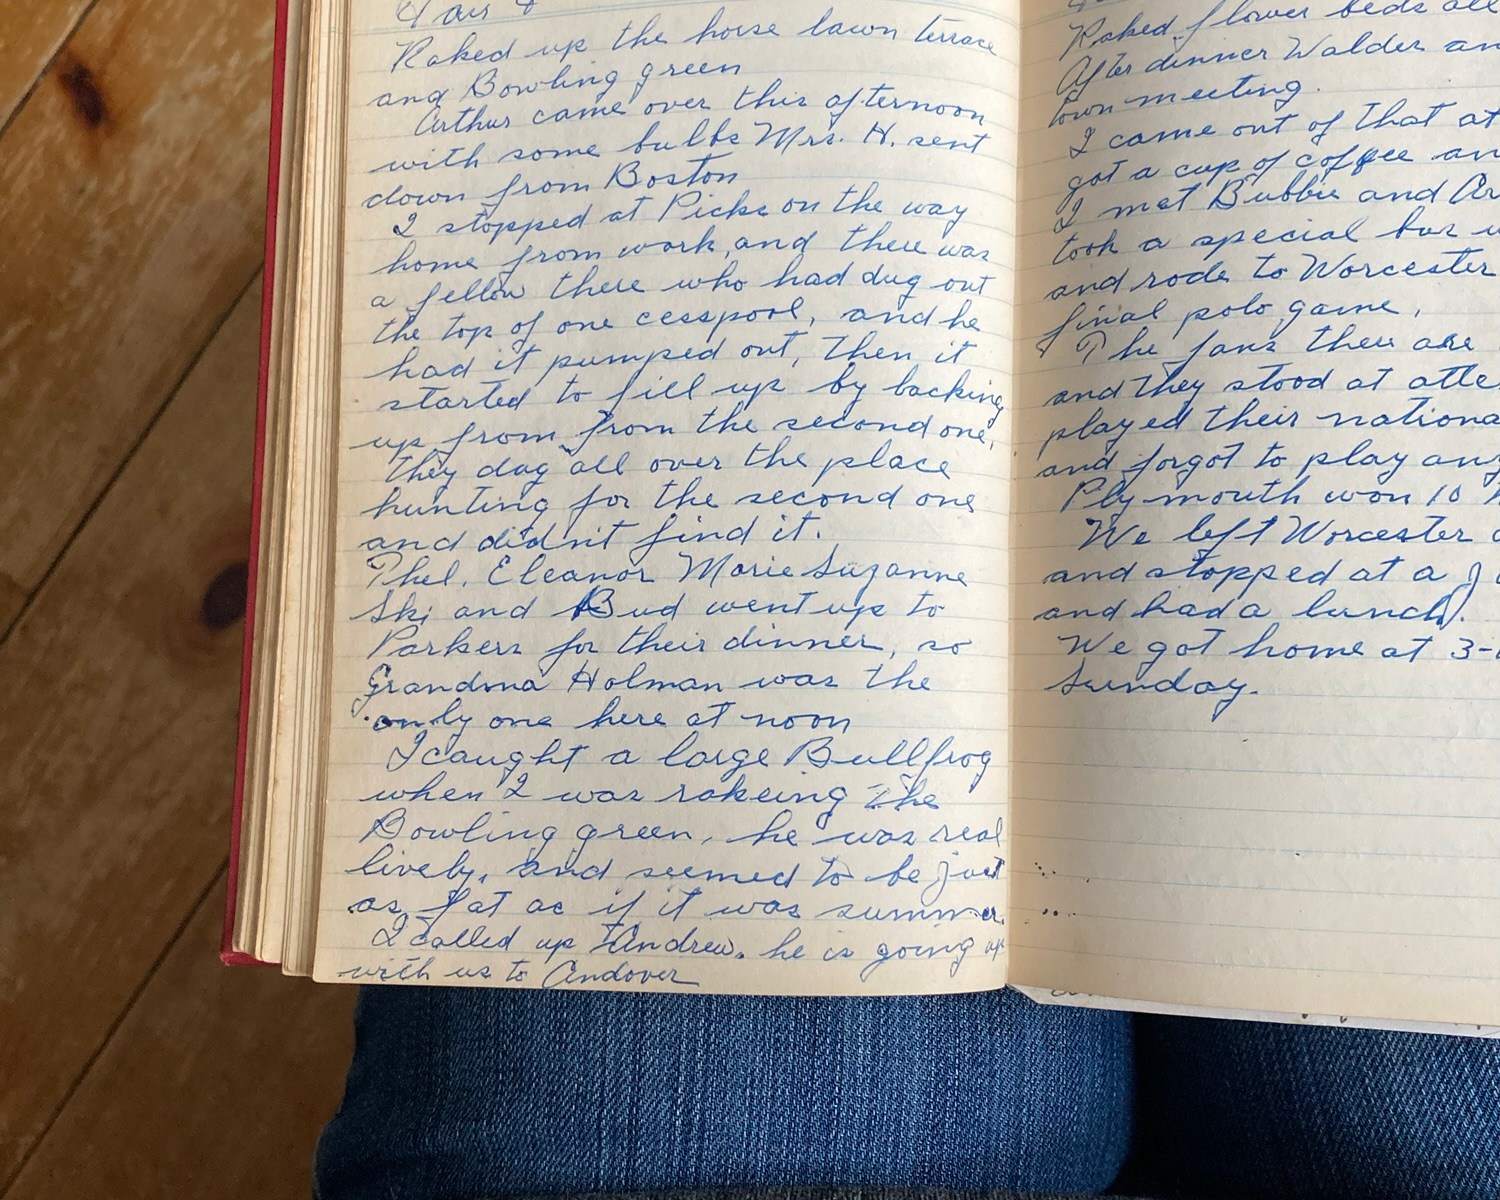 Fair &
Raked up the horse lawn terrace
and Bowling green
Arthur came over this afternoon
with some bulbs Mrs. H. sent
down from Boston
I stopped at Picks on the way
home from work, and there was
a fellow there who had dug out
the top of one cesspool, and he
had it pumped out, then it
started to fill up by backing
up from from the second one,
they dug all over the place
hunting for the second one
and didn't find it.
Thel. Eleanor Marie Suzanne
Ski and Bud went up to
Parkers for their dinner, so
Grandma Holman was the
only one here at noon
I caught a large Bullfrog
when I was rakeing the
Bowling green, he was real
lively, and seemed to be just
as fat as if it was summer.
I called up Andrew. he is going up
with us to Andover
Raked flower beds all
After dinner Walder an
town meeting.
I came out of that at
got a cup of coffee an
I met Bubbie and Ar
took a special bus
and rode to Worcester
final polo game.
The fans there are
and they stood at atte
played their nationa
and forgot to play any
Plymouth won 10
We left Worcester
and stopped at a
and had a lunch.
We got home at 3-
Sunday.